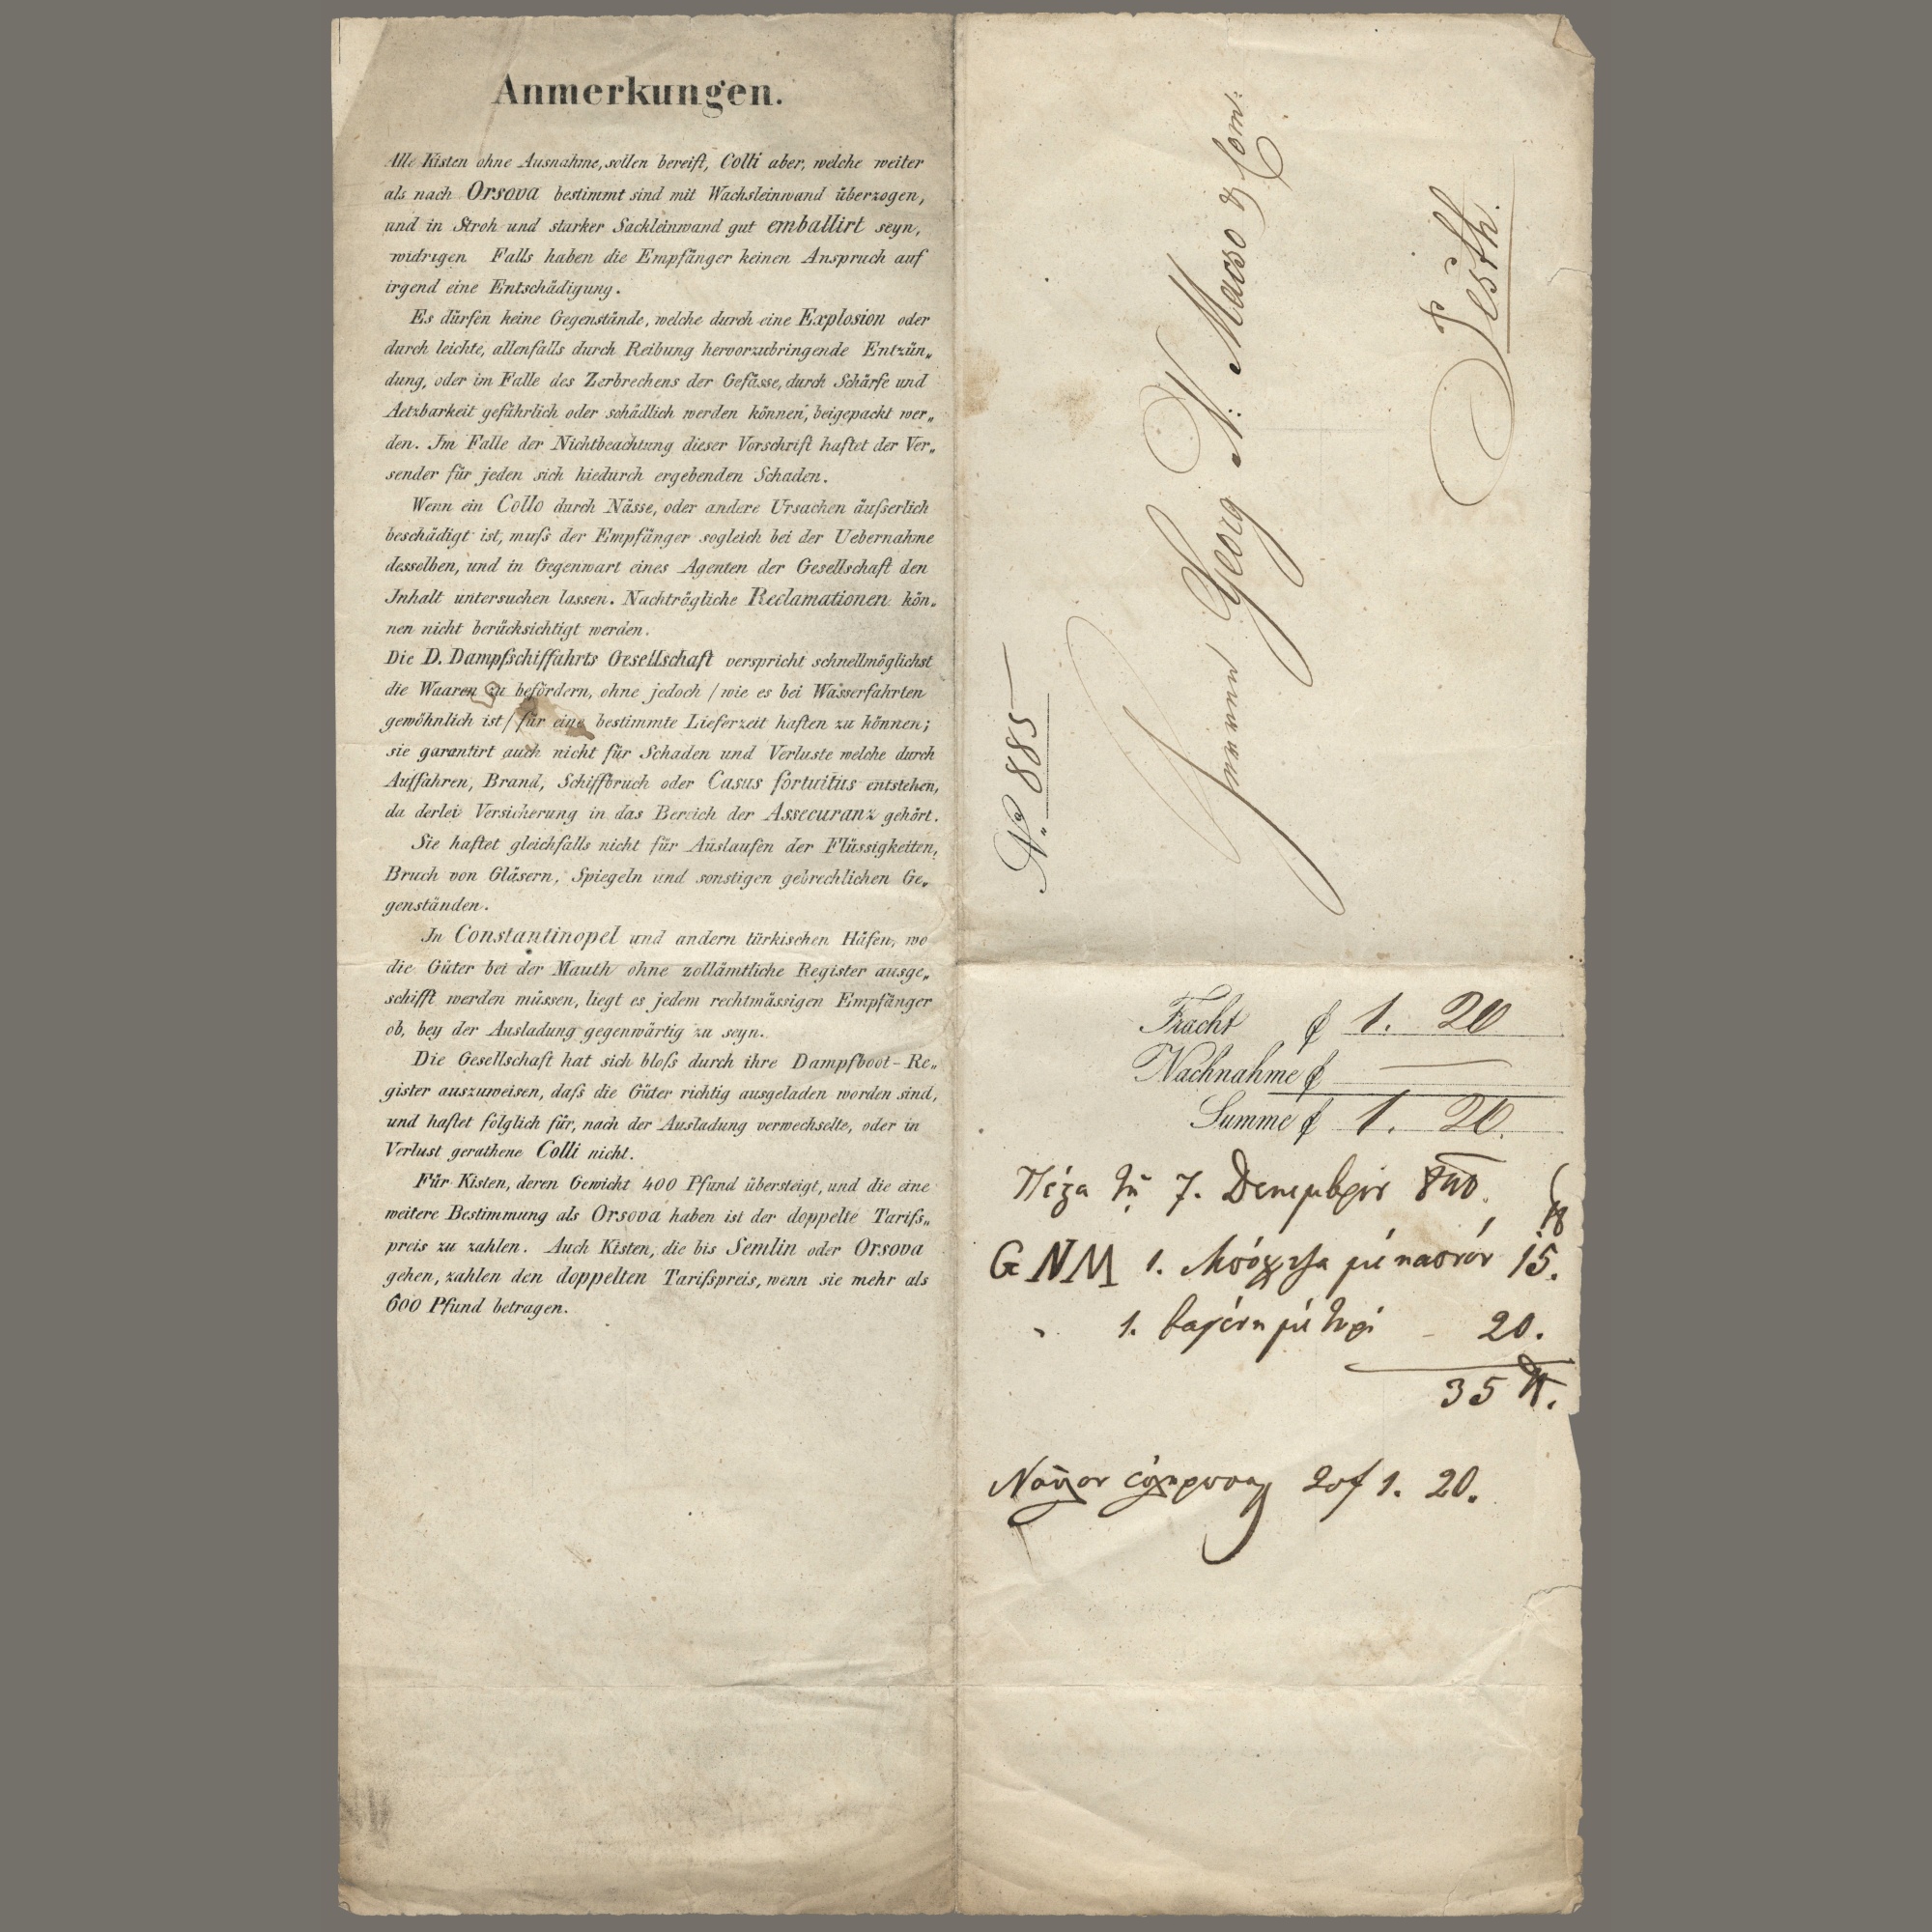 Anmerkungen.
Alle Kisten ohne Ausnahme, sollen bereift, Colli aber, welche weiter
als nach Orsova bestimmt sind mit Wachsleinwand überzogen,
und in Stroh und starker Sackleinwand gut emballirt seyn,
widrigen Falls haben die Empfänger keinen Anspruch auf
irgend eine Entschädigung.
Es dürfen keine Gegenstände, welche durch eine Explosion oder
durch leichte, allenfalls durch Reibung hervorzubringende Entzün„
dung, oder im Falle des Zerbrechens der Gefässe, durch Schärfe und
Aetzbarkeit gefährlich oder schädlich werden können, beigepackt wer„
den. Jm Falle der Nichtbeachtung dieser Vorschrift haftet der Ver„
sender für jeden sich hiedurch ergebenden Schaden.
Wenn ein Collo durch Nässe, oder andere Ursachen äufserlich
beschädigt ist, mufs der Empfänger sogleich bei der Uebernahme
desselben, und in Gegenwart eines Agenten der Gesellschaft den
Jnhalt untersuchen lassen. Nachträgliche Reclamationen kön„
nen nicht berücksichtigt werden.
Die D. Dampfschiffahrts Gesellschaft verspricht schnellmöglichst
die Waaren zu befördern, ohne jedoch /wie es bei Wasserfahrten
gewöhnlich ist/ für eine bestimmte Lieferzeit haften zu können;
sie garantirt auch nicht für Schaden und Verluste welche durch
Auffahren, Brand, Schiffbruch oder Casus fortuitus entstehen,
da derlei Versicherung in das Bereich der Assecuranz gehört.
Sie haftet gleichfalls nicht für Auslaufen der Flüssigkeiten,
Bruch von Gläsern, Spiegeln und sonstigen gebrechlichen Ge„
genständen.
Jn Constantinopel und andern türkischen Häfen, wo
die Güter bei der Mauth ohne zollämtliche Register ausge„
schifft werden müssen, liegt es jedem rechtmässigen Empfänger
ob, bey der Ausladung gegenwärtig zu seyn.
Die Gesellschaft hat sich blofs durch ihre Dampfboot-Re„
gister auszuweisen, dafs die Güter richtig ausgeladen worden sind,
und haftet folglich für, nach der Ausladung verwechselte, oder in
Verlust gerathene Colli nicht.
Für Kisten, deren Gewicht 400 Pfund übersteigt, und die eine
weitere Bestimmung als Orsova haben ist der doppelte Tarifs„
preis zu zahlen. Auch Kisten, die bis Semlin oder Orsova
gehen, zahlen den doppelten Tarifspreis, wenn sie mehr als
600 Pfund betragen.
No. 885
Herrn Georg N: Macso & Com:
Pesth.
Fracht f 1. 20
Nachnahme f —
Summe f 1. 20.
7. Δεκεμβρίου 840.
GNM 1. με καστόν 15.
" 1. βαρέλι με τυρί - 20.
35
Ναῦλον 1. 20.